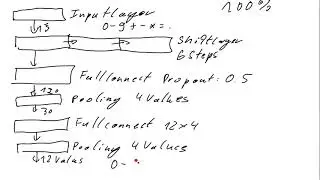 InputLayer 100%
0-9+-x=.
13
Shiftlayer
6 Steps
Fullconnect Dropout: 0.5
120
Pooling 4 Values
30
Fullconnect 12x4
Pooling 4 Values
12 Values 0-